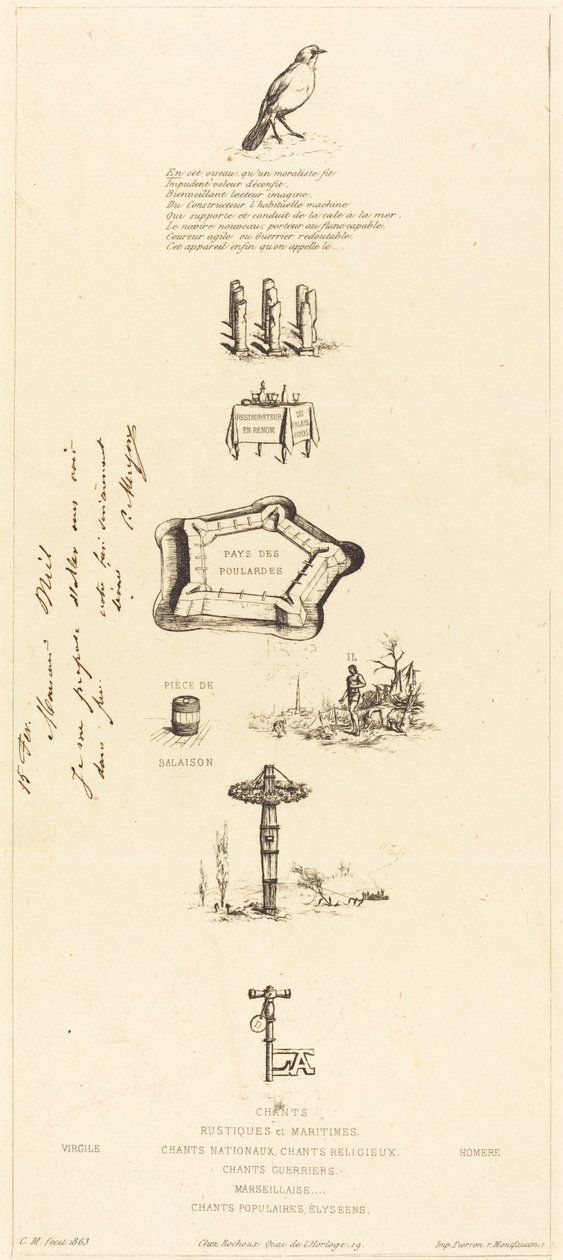 En cet oiseau qu'un moraliste fit
Impudent voleur déconfit.
Bienveillant lecteur imagine,
Du Constructeur l'habituelle machine
Qui supporte et conduit de la cale à la mer,
Le navire nouveau; porteur au flanc capable.
Coureur agile ou Guerrier redoutable.
Cet appareil enfin qu'on appelle le ....
RESTAURATEUR
EN RENOM
DU
PALAIS
ROYAL
PAYS DES
POULARDES
15 Fev.
Monsieur Niel
Je me propose d'aller vous voir
dans peu.
votre
C. Meryon
IL
PIÈCE DE
SALAISON
D
LA
CHANTS
RUSTIQUES et MARITIMES.
VIRGILE
CHANTS NATIONAUX, CHANTS RELIGIEUX.
HOMERE
CHANTS GUERRIERS.
MARSEILLAISE....
CHANTS POPULAIRES, ÉLYSEENS.
C. M. fecit 1863
Chez Rochoux Quai de l'Horloge, 19.
Imp. Pierron r. Montfaucon, 1